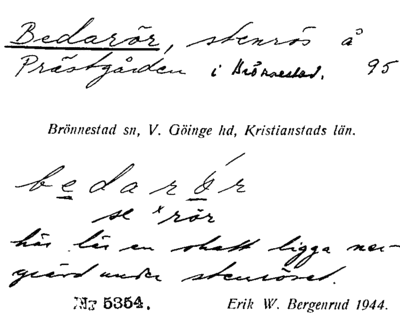 Bedarör, stenrös å
Prästgården i Brönnestad. 95
Brönnestad sn, V. Göinge hd, Kristianstads län.
bedarör
se ˣrör
här lär en skatt ligga ner-
grävd under stenröset.
Nr 5354. Erik W. Bergenrud 1944.